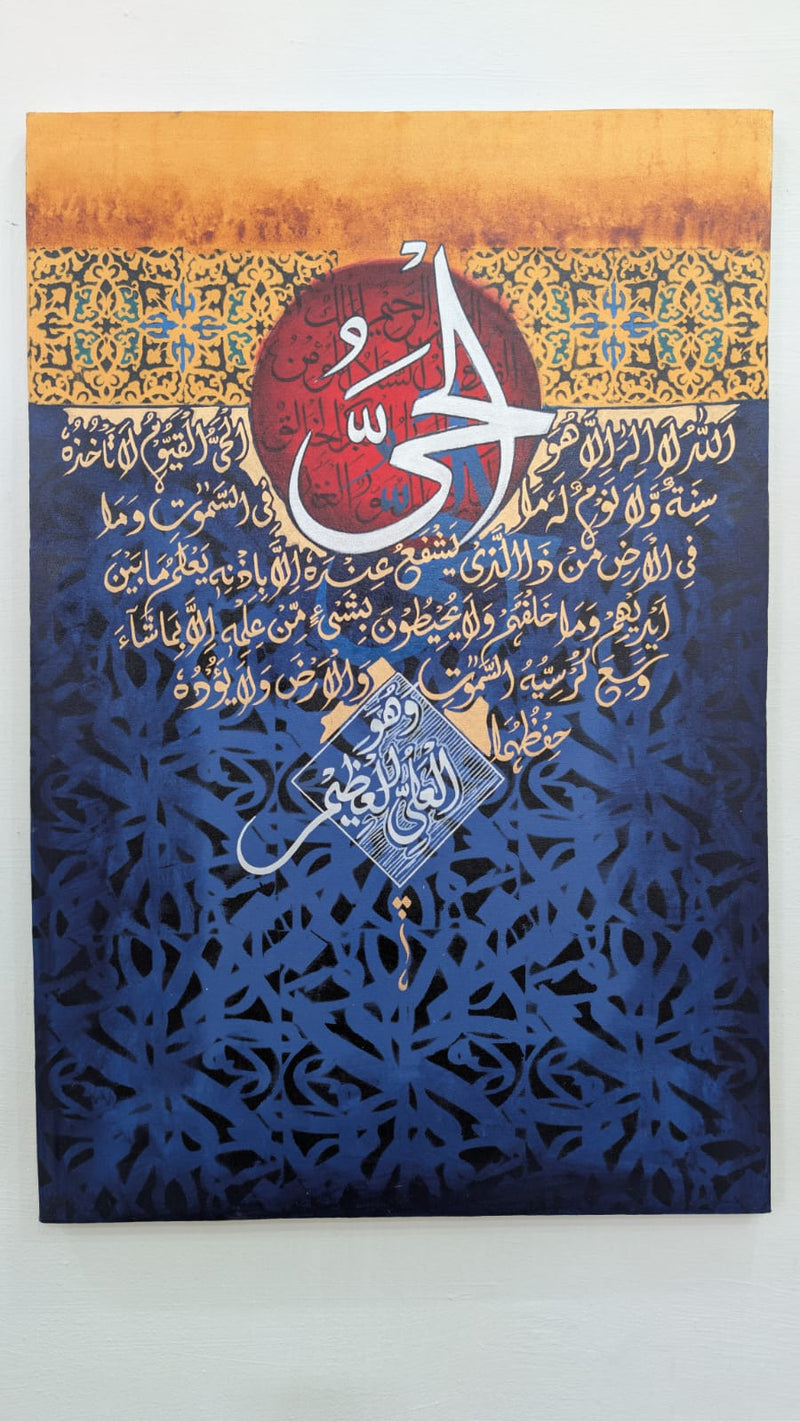 الحَیُّ
اَللّٰهُ لَا اِلٰهَ اِلَّا هُوَ اَلْحَیُّ الْقَیُّوْمُ لَا تَاْخُذُهٗ
سِنَةٌ وَّلَا نَوْمٌ لَهٗ مَا فِی السَّمٰوٰتِ وَمَا
فِی الْاَرْضِ مَنْ ذَا الَّذِی یَشْفَعُ عِنْدَهٗ اِلَّا بِاِذْنِهٖ یَعْلَمُ مَا بَیْنَ
اَیْدِیْهِمْ وَمَا خَلْفَهُمْ وَلَا یُحِیْطُوْنَ بِشَیْءٍ مِّنْ عِلْمِهٖ اِلَّا بِمَا شَآءَ
وَسِعَ كُرْسِیُّهُ السَّمٰوٰتِ وَالْاَرْضَ وَلَا یَؤُدُهٗ
حِفْظُهُمَا
وَهُوَ
الْعَلِیُّ الْعَظِیْمُ